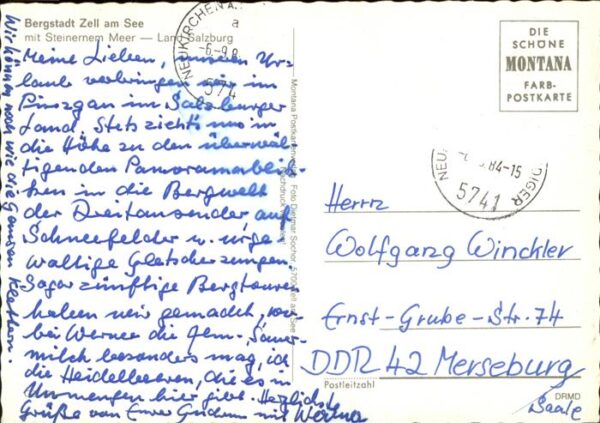 Bergstadt Zell am See
mit Steinernem Meer — Land Salzburg
Meine Lieben, unseren Ur-
laub verbringen wir im
Pinzgau im Salzburger
Land. Stets zieht's uns in
die Höhe zu den überwäl-
tigenden Panoramablik-
ken in die Bergwelt
der Dreitausender, auf
Schneefelder u. urge-
waltige Gletscherzungen.
Sogar zünftige Bergtouren
haben wir gemacht, wo-
bei Werner die Alm-Sauer-
milch besonders mag, ich
die Heidelbeeren, die es in
Unmengen hier gibt. Herzlichste
Grüße von Eurer Gudrun mit Werner
Wir können noch wie die Gemsen klettern.
NEUKIRCHEN A.
a
5741
Montana Postkartenverlag Foto Dietmar Sochor, 5700 Zell am See
Nachdruck
DIE
SCHÖNE
MONTANA
FARB-
POSTKARTE
84-15
5741
Herrn
Wolfgang Winckler
Ernst-Grube-Str. 74
DDR 42 Merseburg
Postleitzahl
DRMD
Saale